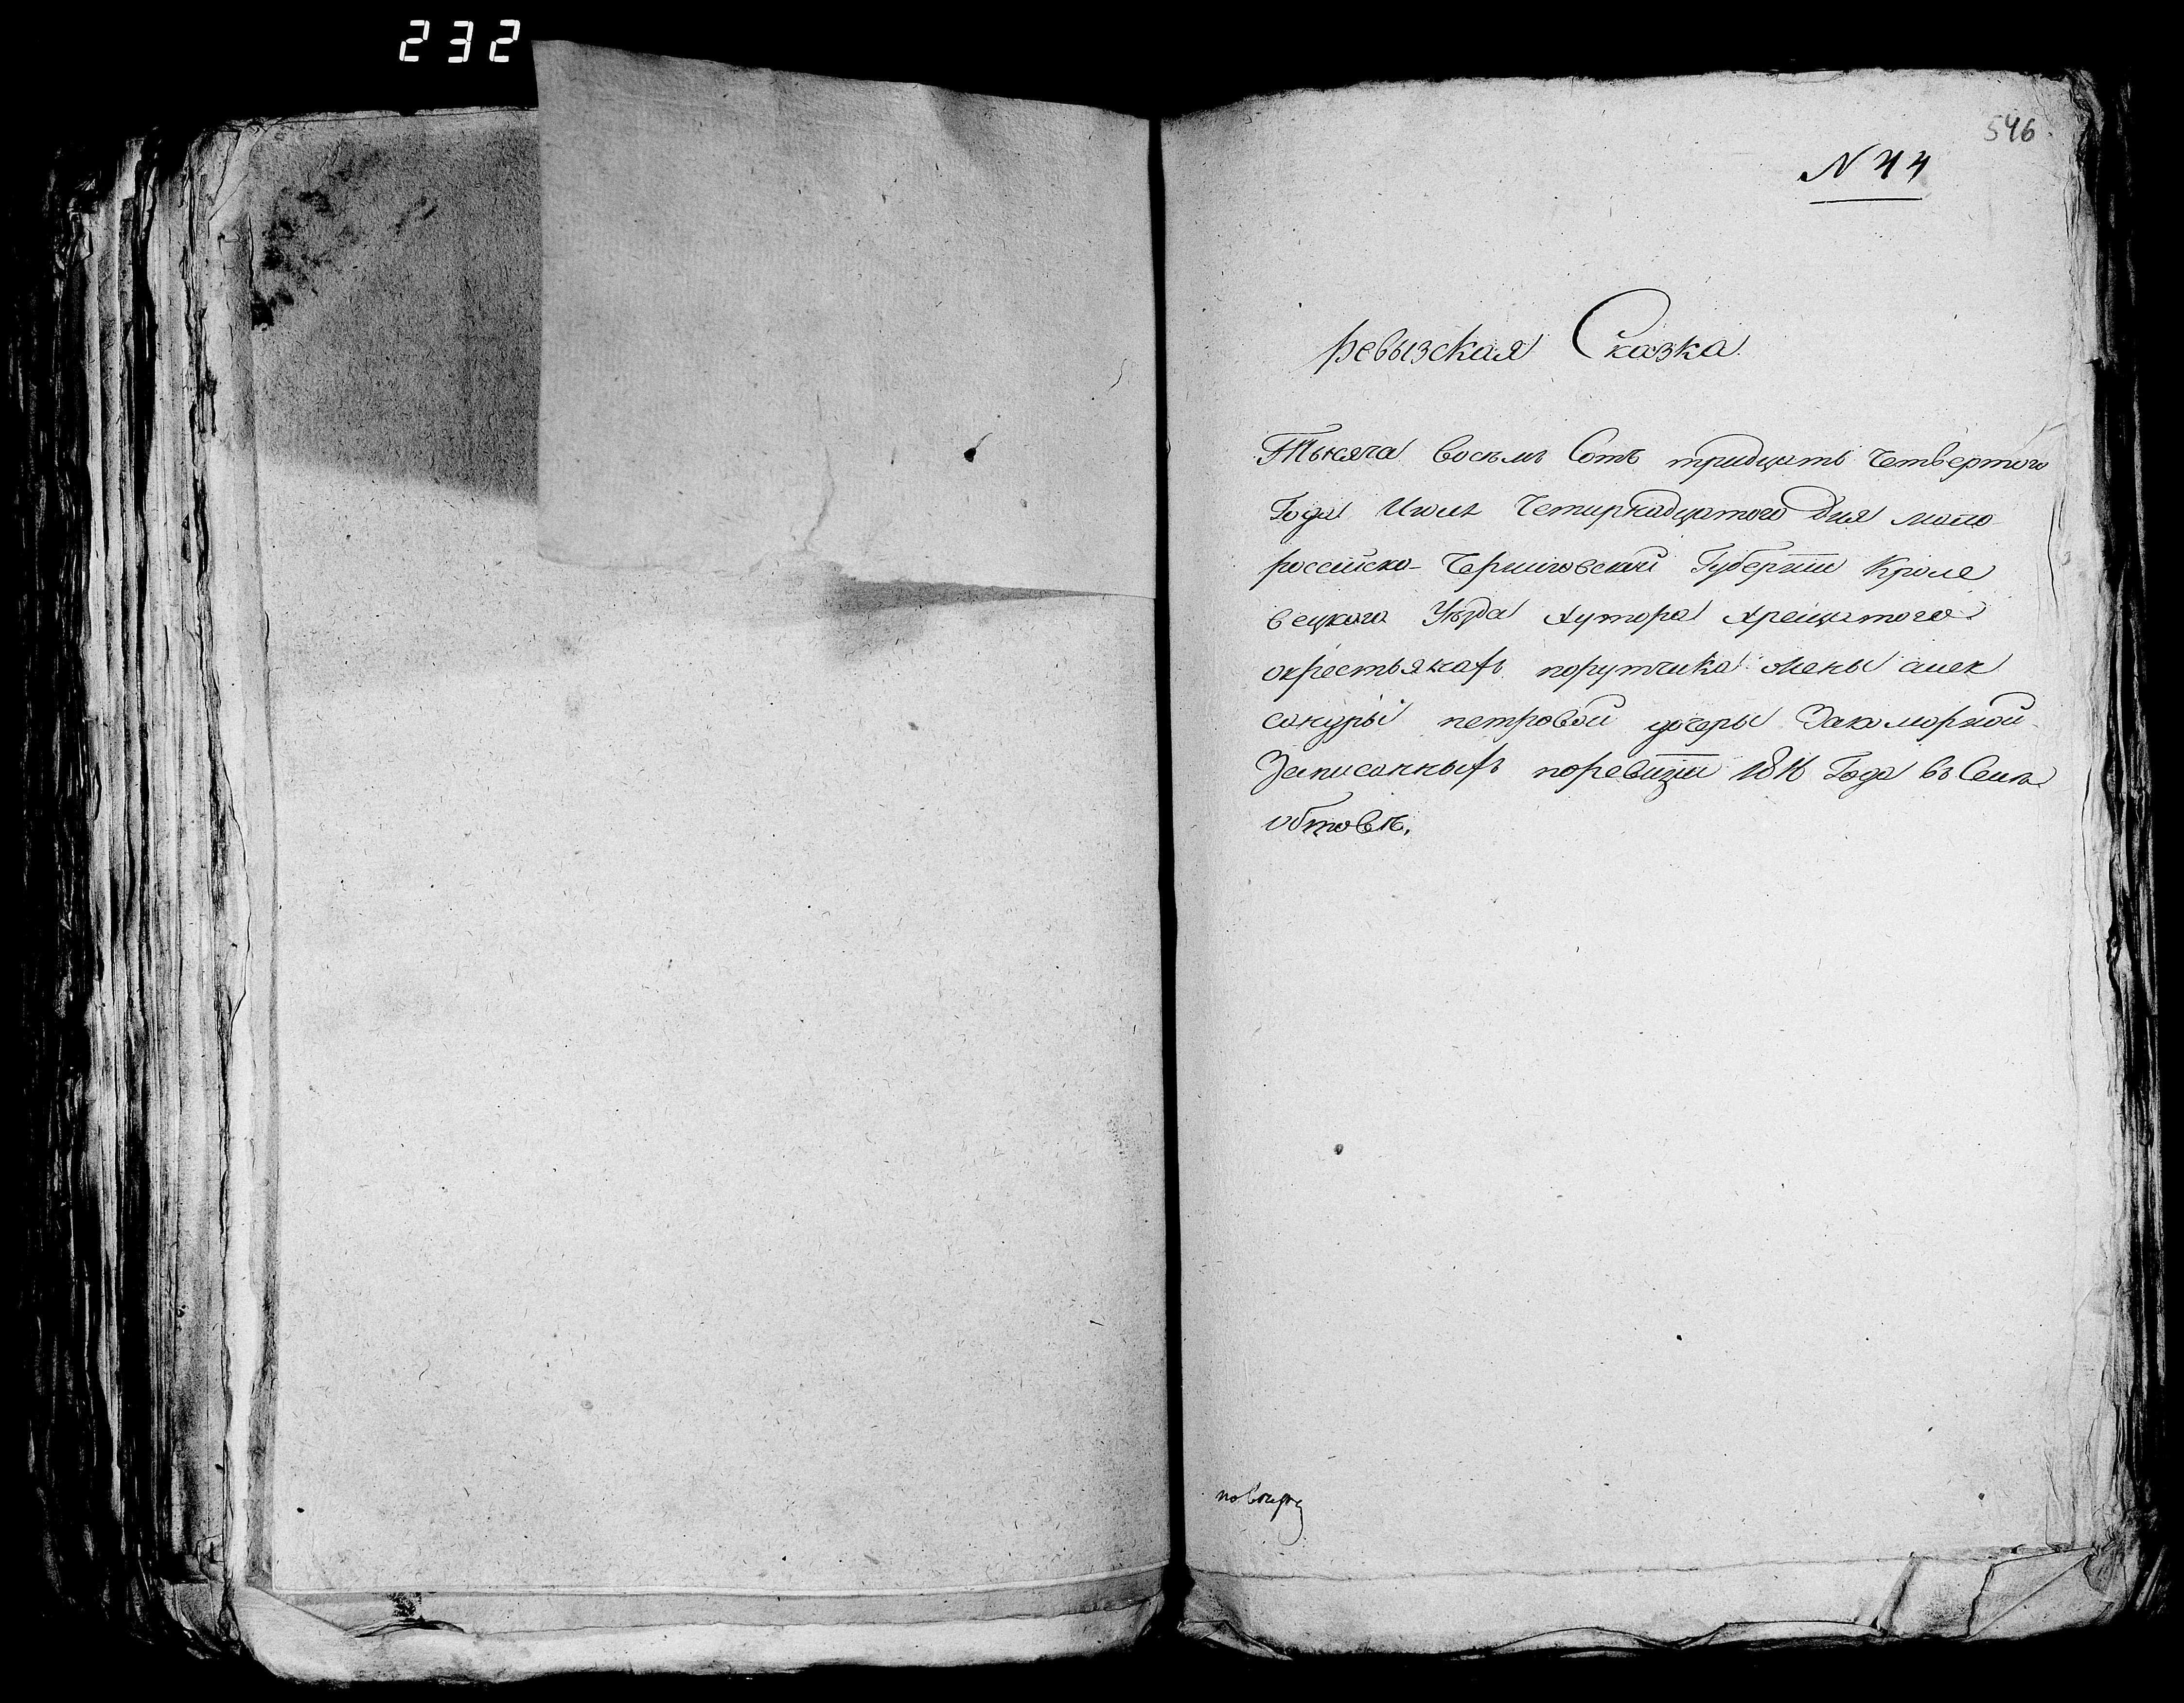 232
546
N 44
ревызская Сказка
Тысяча восемь Сотъ тридцать Четвертого
Года Июля Четирнадцатого Дня мало
российско-Черниговской Губернии Кроле
вецкого Уѣзда хутора хрещатого
окрестьянахъ порутчика жены алек
сандры петровой дочеры Закоморной
Записанныхъ поревизіи 1816 Года въ Селѣ
Обтовѣ.